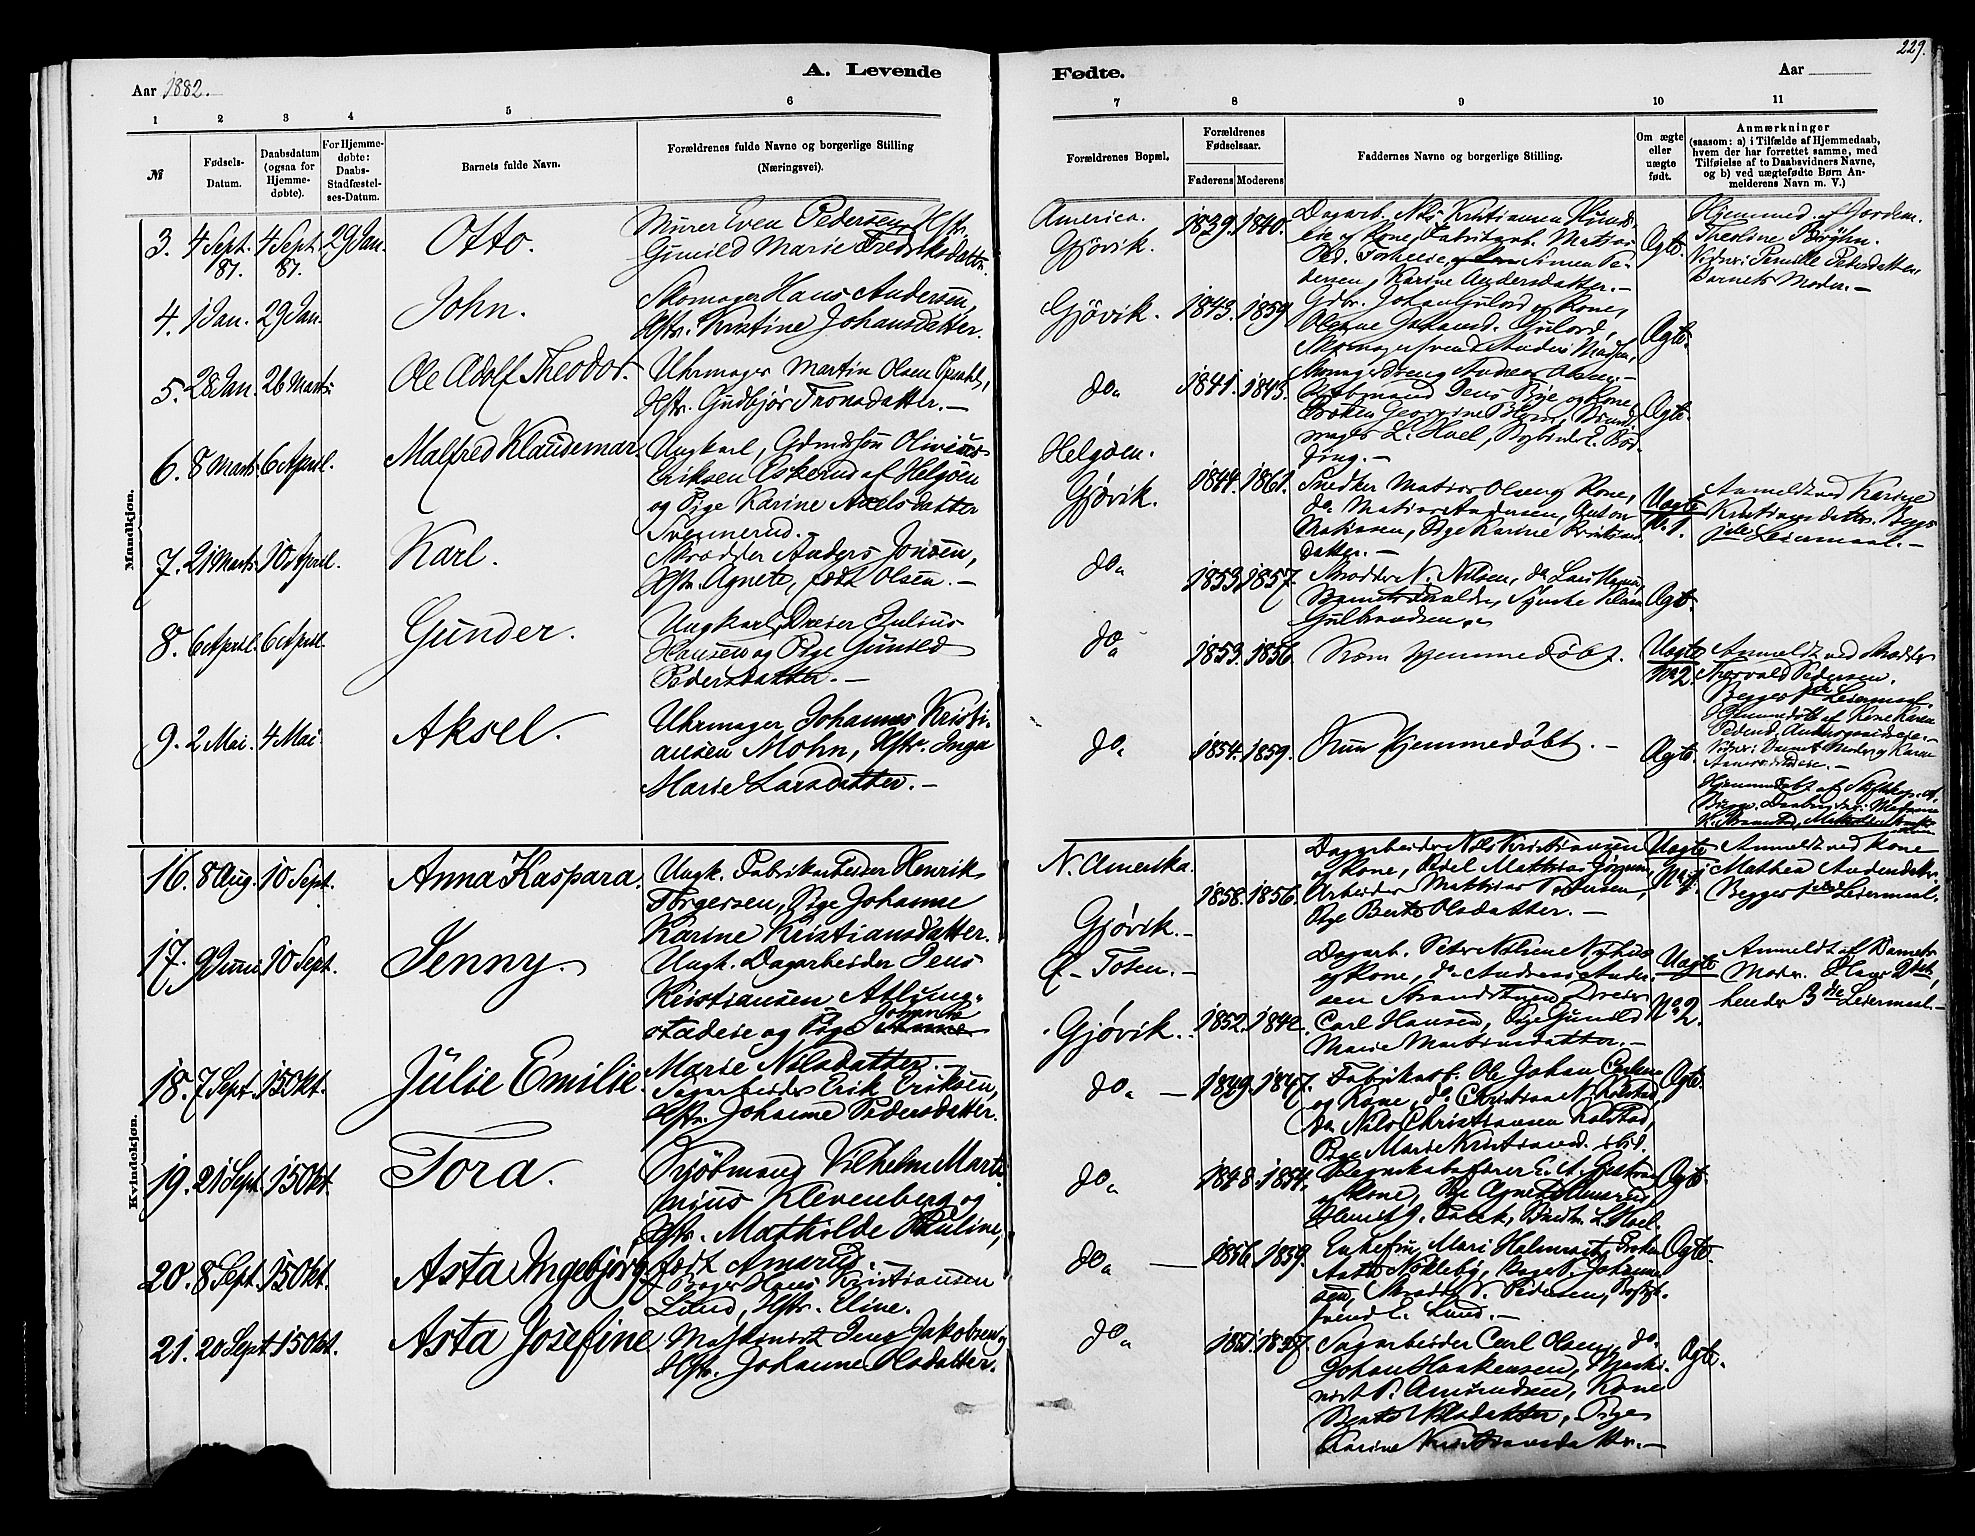 229.
Aar 1882.
A. Levende
Fødte.
Aar
1 2 3 4 5 6
7 8 9 10 11
№
Fødsels-
Datum.
Daabsdatum
(ogsaa for
Hjemme-
døbte).
For Hjemme-
døbte:
Daabs-
Stadfæstel-
ses-Datum.
Barnets fulde Navn.
Forældrenes fulde Navne og borgerlige Stilling
(Næringsvei).
Forældrenes Bopæl.
Forældrenes
Fødselsaar.
Faderens Moderens
Faddernes Navne og borgerlige Stilling.
Om ægte
eller
uægte
født.
Anmærkninger
(saasom: a) i Tilfælde af Hjemmedaab,
hvem der har forrettet samme, med
Tilføielse af to Daabsvidners Navne,
og b) ved uægtefødte Børn An-
melderens Navn m. V.)
Mandkjøn.
3. 4 Sept. 81. 4 Sept. 81. 29 Jan. Otto.
Murer Even Pedersen, Hstr.
Gunild Marie Fredriksdatter.
America.
Gjøvik.
1839. 1840.
Dagarb. Nils Kristiansen
og Kone, Fabrikarb. Matias
Simen Pe-
dersen, Karine Andersdatter.—
Ægte.
Hjemmed. af Jordem.
Theoline Bøghn.
Vidner: Pernille Pedersdatter,
Barnets Moder.—
4. 1 Jan. 29 Jan. John.
Skomager Hans Andersen,
Hstr. Kristine Johansdatter.
Gjøvik.
1843. 1859
Gdbr. Johan Gulord og Kone,
Oleane Johansd. Gulord,
Skomagersvend Anders Madsen,
Skomagerdreng Andreas Olsen.—
Ægte.
5. 28 Jan. 26 Marts. Ole Adolf Theodor.
Uhrmager Martin Olsen
Hstr. Gudbjør Tronsdatter.—
do.
1841. 1843.
Kjøbmand Jens Bye og Kone,
Frøken Georgine
mager L. Hoel,
Ægte.
6. 8 Marts. 6 April. Malfred Klaudemar
Ungkarl, Gdmdsøn Olivius
Eriksen Eskerud af Helgøen
og Pige Karine Axelsdatter
Svennerud.
Helgøen.
Gjøvik.
1844. 1861.
Snedker Matias Olsen og Kone,
do. Matias Andersen, Anton
Matiasen, Pige Karine Kristians-
datter.—
Uægte
No 1.
Anmeldt ved Karine
Kristiansdatter. Begges
1ste Leiermaal.—
7. 21 Marts. 10 April. Karl.
Skrædder Anders Jonsen,
Hstr. Agnete, født Olsen.—
do.
1853. 1857.
Skrædder N. Nilsen, do. Lars
Gulbrandsen.
Ægte.
8. 6 April. 6 April. Gunder.
Ungkarl, Dreier Julius
Hansen og Pige Gunild
Pedersdatter.—
do.
1853. 1856.
Kun hjemmedøbt.
Uægte
No 2.
Anmeldt ved Skrædder
Thorvald Pedersen.
Begges 1ste Leiermaal.
Hjemmedøbt af Kone Karen
Pedersd.
9. 2 Mai. 4 Mai. Aksel.
Uhrmager Johannes Kristi-
ansen Mohn, Hstr. Inga
Marie Larsdatter.—
do.
1854. 1859.
Kun hjemmedøbt.—
Ægte.
Hjemmedøbt af
Kvindekjøn.
16. 8 Aug. 10 Sept. Anna Kaspara.
Ungk. Fabrikarbeider Henrik
Torgersen, Pige Johanne
Karine Kristiansdatter.
N. Amerika.
Gjøvik.—
1858. 1856.
Dagarbeider Nils Kristiansen
og Kone, Mathias Jørgensen,
Arbeider Mathias Pedersen,
Pige Berte Olsdatter.—
Uægte
No 1.
Anmeldt ved Kone
Mathea Andersdatter.
Begges 1ste Leiermaal.
17. 9 Juni 10 Sept. Jenny.
Ungk. Dagarbeider Jens
Kristiansen Alfung-
stadeie og Pige Johanne
Marie Nilsdatter.—
Ø. Toten.—
Gjøvik.
1852. 1842.
Dagarb. Peter Nilsen Nyhus
og Kone, do. Andreas Ander-
sen Strandstuen, Dreier
Carl Hansen, Pige Gunild
Marie Martinsdatter.—
Uægte
No 2.
Anmeldt af Barnets
Moder. Hans 2det,
hendes 3die Leiermaal.—
18. 7 Sept. 15 Okt. Julie Emilie
Sagarbeider Erik Eriksen,
Hstr. Johanne Pedersdatter.
do. —
1849. 1847.
Fabrikarb. Ole Johan
og Kone, do. Christian N. Kolstad,
do. Nils Christiansen Kolstad,
Pige Marie Kristiansd. ibid.
Ægte.
19. 21 Sept. 15 Okt. Tora.
Kjøbmand Vilhelm Marti-
nius Klevenberg og
Hstr. Mathilde Pauline,
født Amerud.
do.
1848. 1854.
Regnskabsfører E. A.
og Kone, Pige Agnes Amerud,
L. Hoel.
Ægte.
20. 8 Sept. 15 Okt. Asta Ingebjørg
Bager Hans Kristiansen
Lund, Hstr. Eline.
do. —
1856. 1859.
Enkefru Mari
Asta Nøkleby, Bager P. Johanne-
sen, Skrædder S. Pedersen,
svend E. Lund.—
Ægte.
21. 20 Sept. 15 Okt. Asta Josefine
Maskinist Jens Jakobsen og
Hstr. Johanne Olsdatter.
do.
1851. 1857.
Sagarbeider Carl Olsen, do.
Johan Haakensen, Maski-
nist P. Amundsen, Kone
Berte Nilsdatter, Pige
Karine Kristiansdatter.—
Ægte.